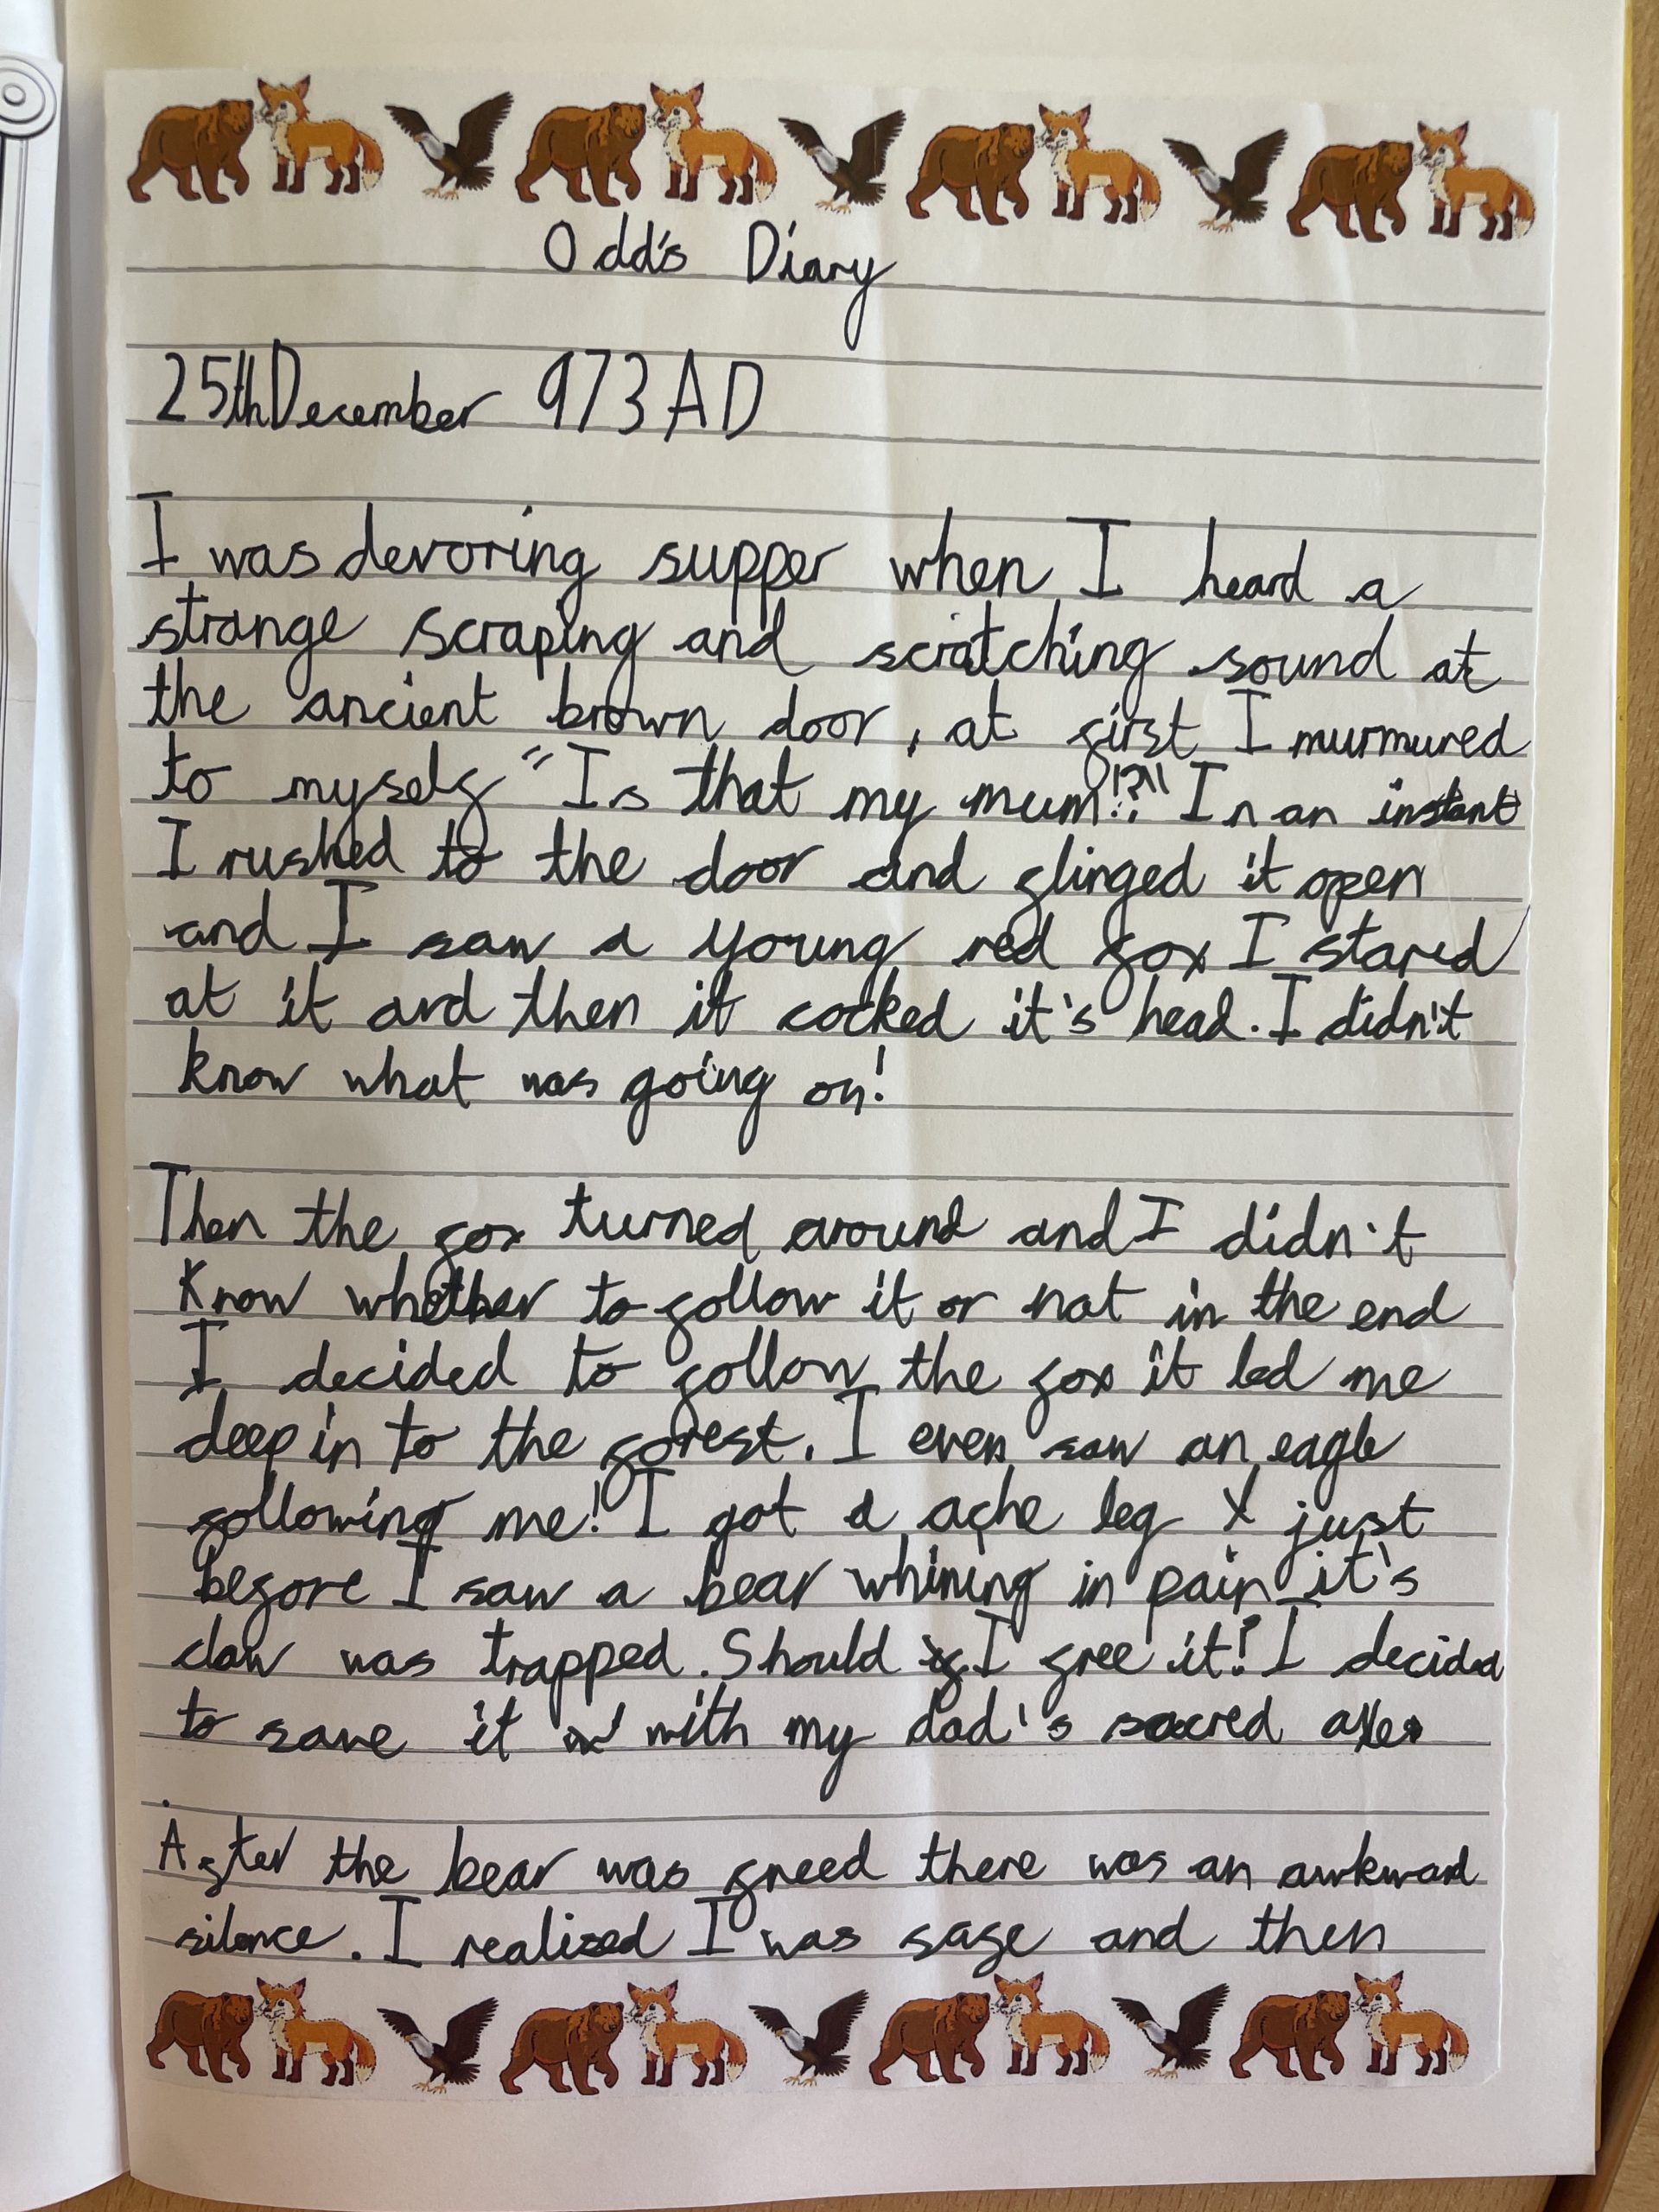 Odd's Diary
25th December 973 AD
I was devoring supper when I heard a
strange scraping and scratching sound at
the ancient brown door, at first I murmured
to myself "Is that my mum!?" In an instant
I rushed to the door and flinged it open
and I saw a young red fox I stared
at it and then it cocked it's head. I didn't
know what was going on!
Then the fox turned around and I didn't
know whether to follow it or not in the end
I decided to follow the fox it led me
deep in to the forest. I even saw an eagle
following me! I got a ache leg just
before I saw a bear whining in pain it's
claw was trapped. Should I free it! I decided
to save it with my dad's sacred axe.
After the bear was freed there was an awkward
silence. I realised I was safe and then